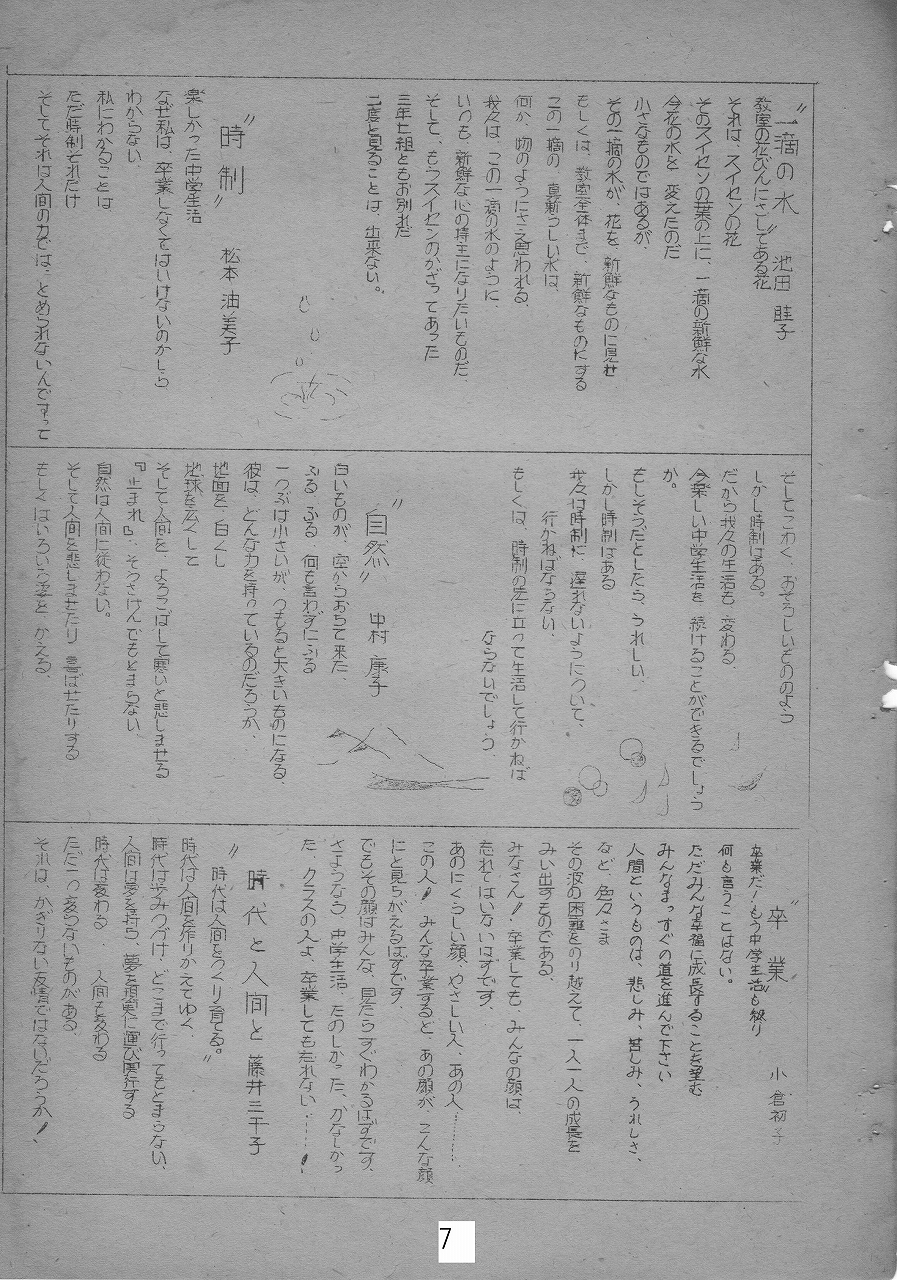 "一滴の水" 池田 睦子
教室の花びんにさしてある花
それは、スイセンの花
そのスイセンの葉の上に、一滴の新鮮な水
今花の水を 変えたのだ
小さなものではあるが、
その一滴の水が、花を、新鮮なものに見せ
もしくは、教室全体まで、新鮮なものにする
この一滴の、真新らしい水は、
何か、物のようにさえ思われる、
我々は、この一滴の水のように
いつも、新鮮な心の持主になりたいものだ、
そして、もうスイセンのかざってあった
三年七組ともお別れだ
二度と見ることは、出来ない。
"時制" 松本 油美子
楽しかった中学生活
なぜ私は、卒業しなくてはいけないのかしら
わからない
私にわかることは
ただ時制それだけ
そしてそれは人間の力では、とめられないんですって
そしてこわく、おそろしいもののよう
しかし時制はある。
だから我々の生活も、変わる、
今楽しい中学生活を 続けることができるでしょう
か。
もしそうだとしたら、うれしい
しかし時制はある
我々は時制に 遅れないようについて、
行かねばならない、
もしくは、時制の先に立って生活して行かねば
ならないでしょう、
"自然" 中村 康子
白いものが、空からおちて来た、
ふる ふる 何も言わずにふる
一つぶは小さいが、つもると大きいものになる、
彼は、どんな力を持っているのだろうか、
地面を、白くし
地球を広くして
そして人間を、よろこばして寒いと悲しませる
『止まれ』、そうさけんでもとまらない、
自然は人間に従わない。
そして人間を悲しませたり 喜ばせたりする
もしくはいろいろ姿を、かえる、
"卒業" 小倉初子
卒業だ!もう中学生活も終り
何も言うことはない。
ただみんな幸福に成長することを望む
みんなまっすぐの道を進んで下さい
人間というものは、悲しみ、苦しみ、うれしさ、
など、色々さま
その波の困難をのり越えて、一人一人の成長を
みい出すものである、
みなさん!卒業しても、みんなの顔は、
忘れてはいないはずです、
あのにくらしい顔、やさしい人、あの人………
この人!みんな卒業すると、あの顔が、こんな顔
にと見ちがえるはずです、
でもその顔はみんな、見たらすぐわかるはずです、
さようなら、中学生活、たのしかった、かなしかっ
た、クラスの人よ、卒業しても忘れない……!
時代と人間と 藤井三千子
"時代は人間をつくり育てる。"
時代は人間を作りかえてゆく
時代は歩みつづけ、どこまで行ってもとまらない、
人間は夢を持ち、夢を現実に運び実行する
時代は変わる 人間も変わる
ただ一つ変らないものがある、
それは、かぎりない友情ではないだろうか!
7